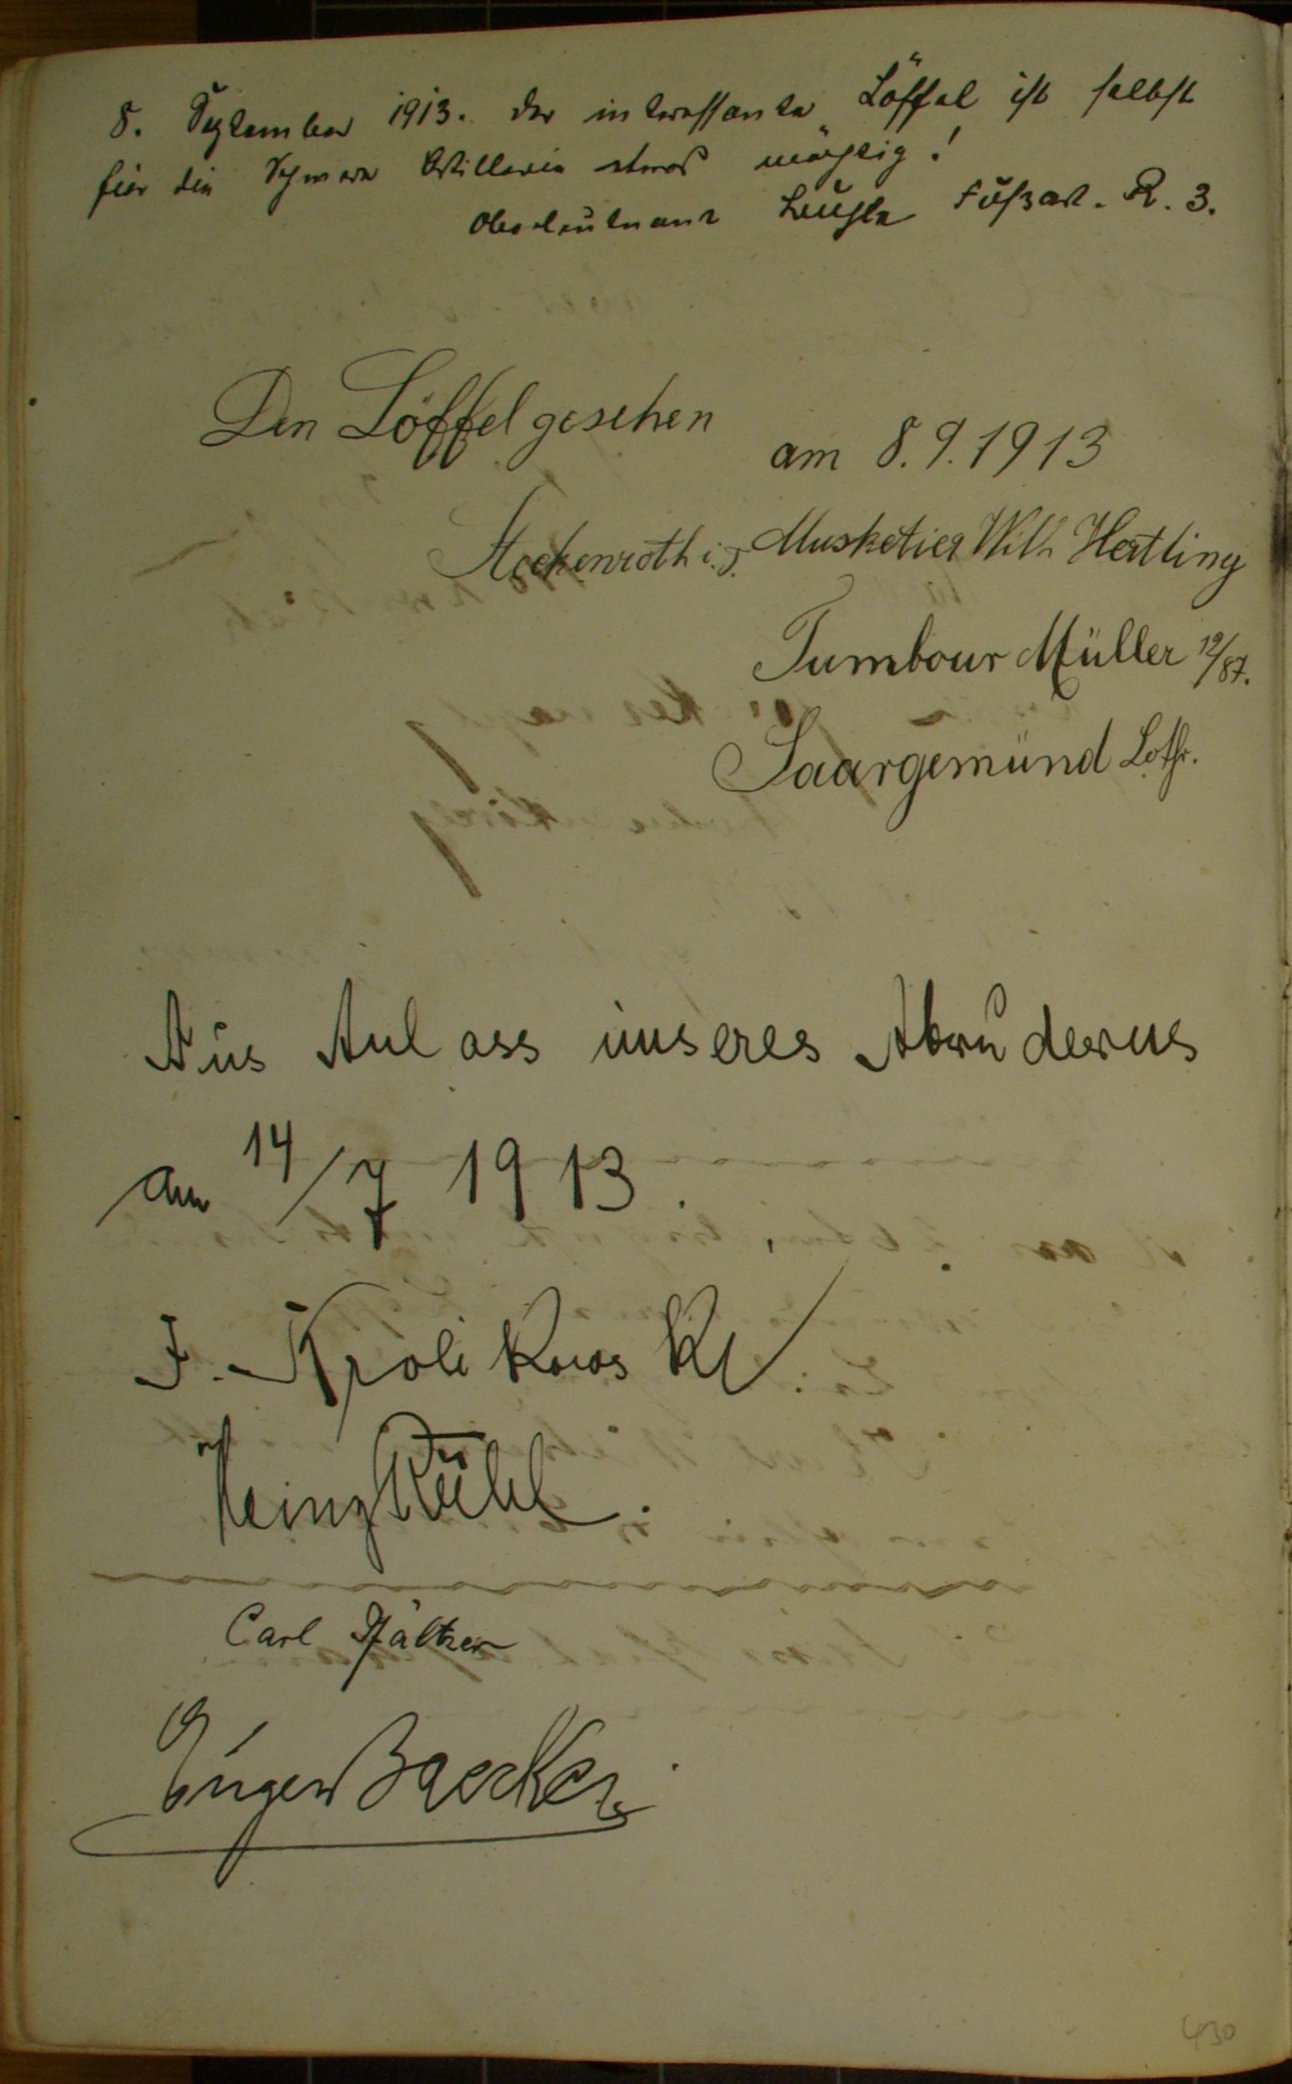 8. September 1913. Der interessante Löffel ist selbst
für die Schwere Artillerie etwas mächtig!
Oberleutnant Fußart. R. 3.
Den Löffel gesehen
am 8.9.1913
Musketier Wilh Hertling
Tumbour Müller 12/87.
Saargemünd Lothr.
Aus Anlass unseres Abruderns
am 14/7 1913.
J. Krolikowski
Heinz Rühl.
Carl Pfältzer
Eugen Baecker.
430